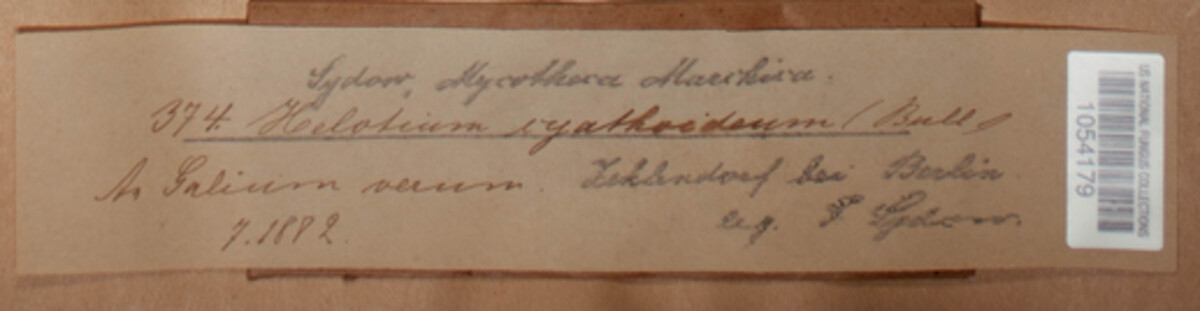 Sydow, Mycotheca Marchica.
374. Helotium cyathoideum (Bull.)
An Galium verum. Zehlendorf bei Berlin
7.1882. leg. P. Sydow.
US NATIONAL FUNGUS COLLECTIONS
1054179